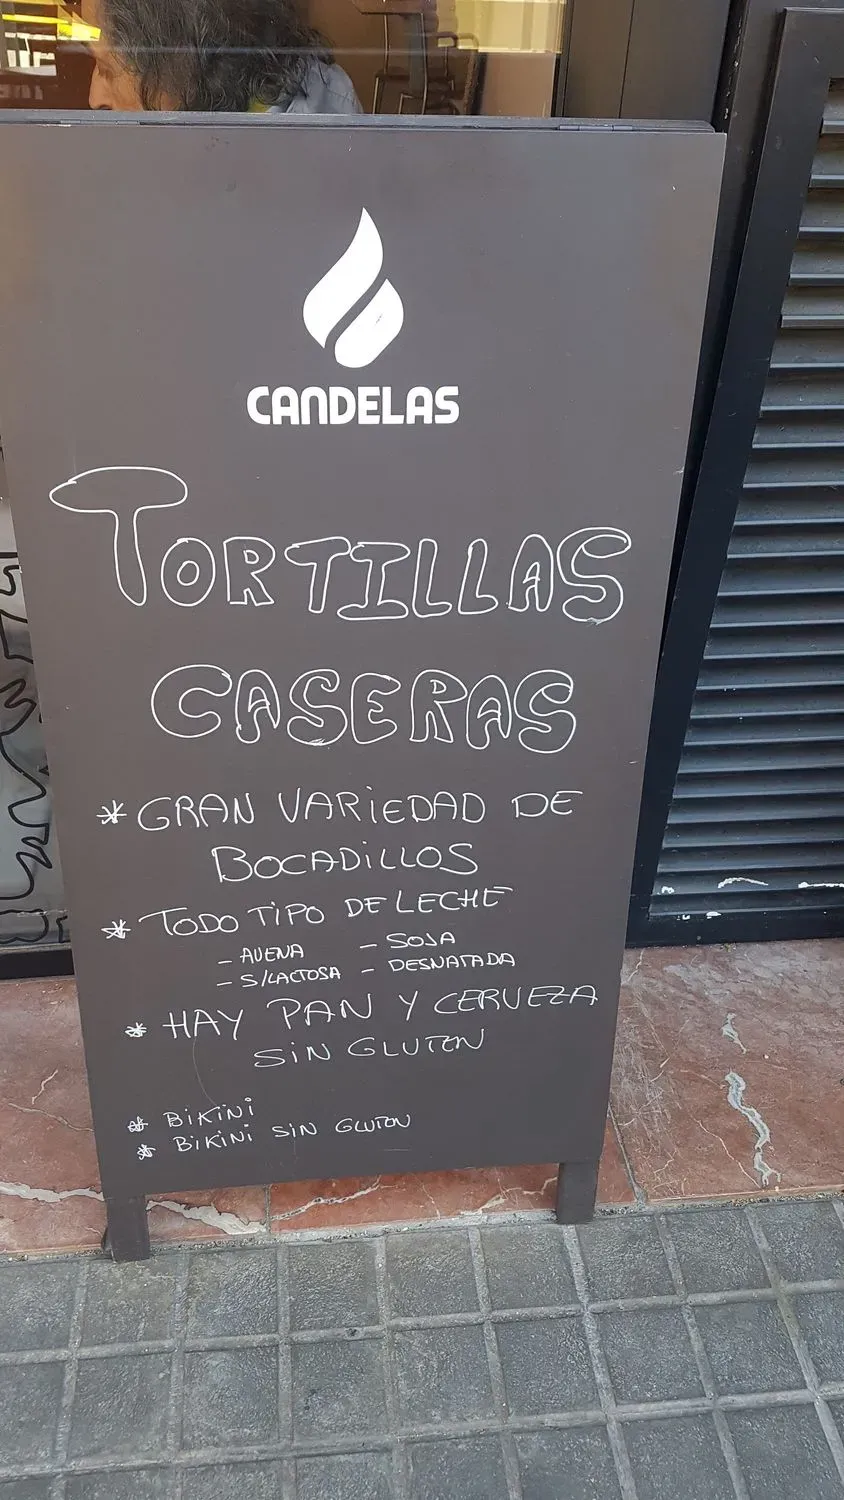 CANDELAS
TORTILLAS
CASERAS
* GRAN VARIEDAD DE
BOCADILLOS
* TODO TIPO DE LECHE
- AVENA - SOJA
- S/LACTOSA - DESNATADA
* HAY PAN Y CERVEZA
SIN GLUTEN
* BIKINI
* BIKINI SIN GLUTEN